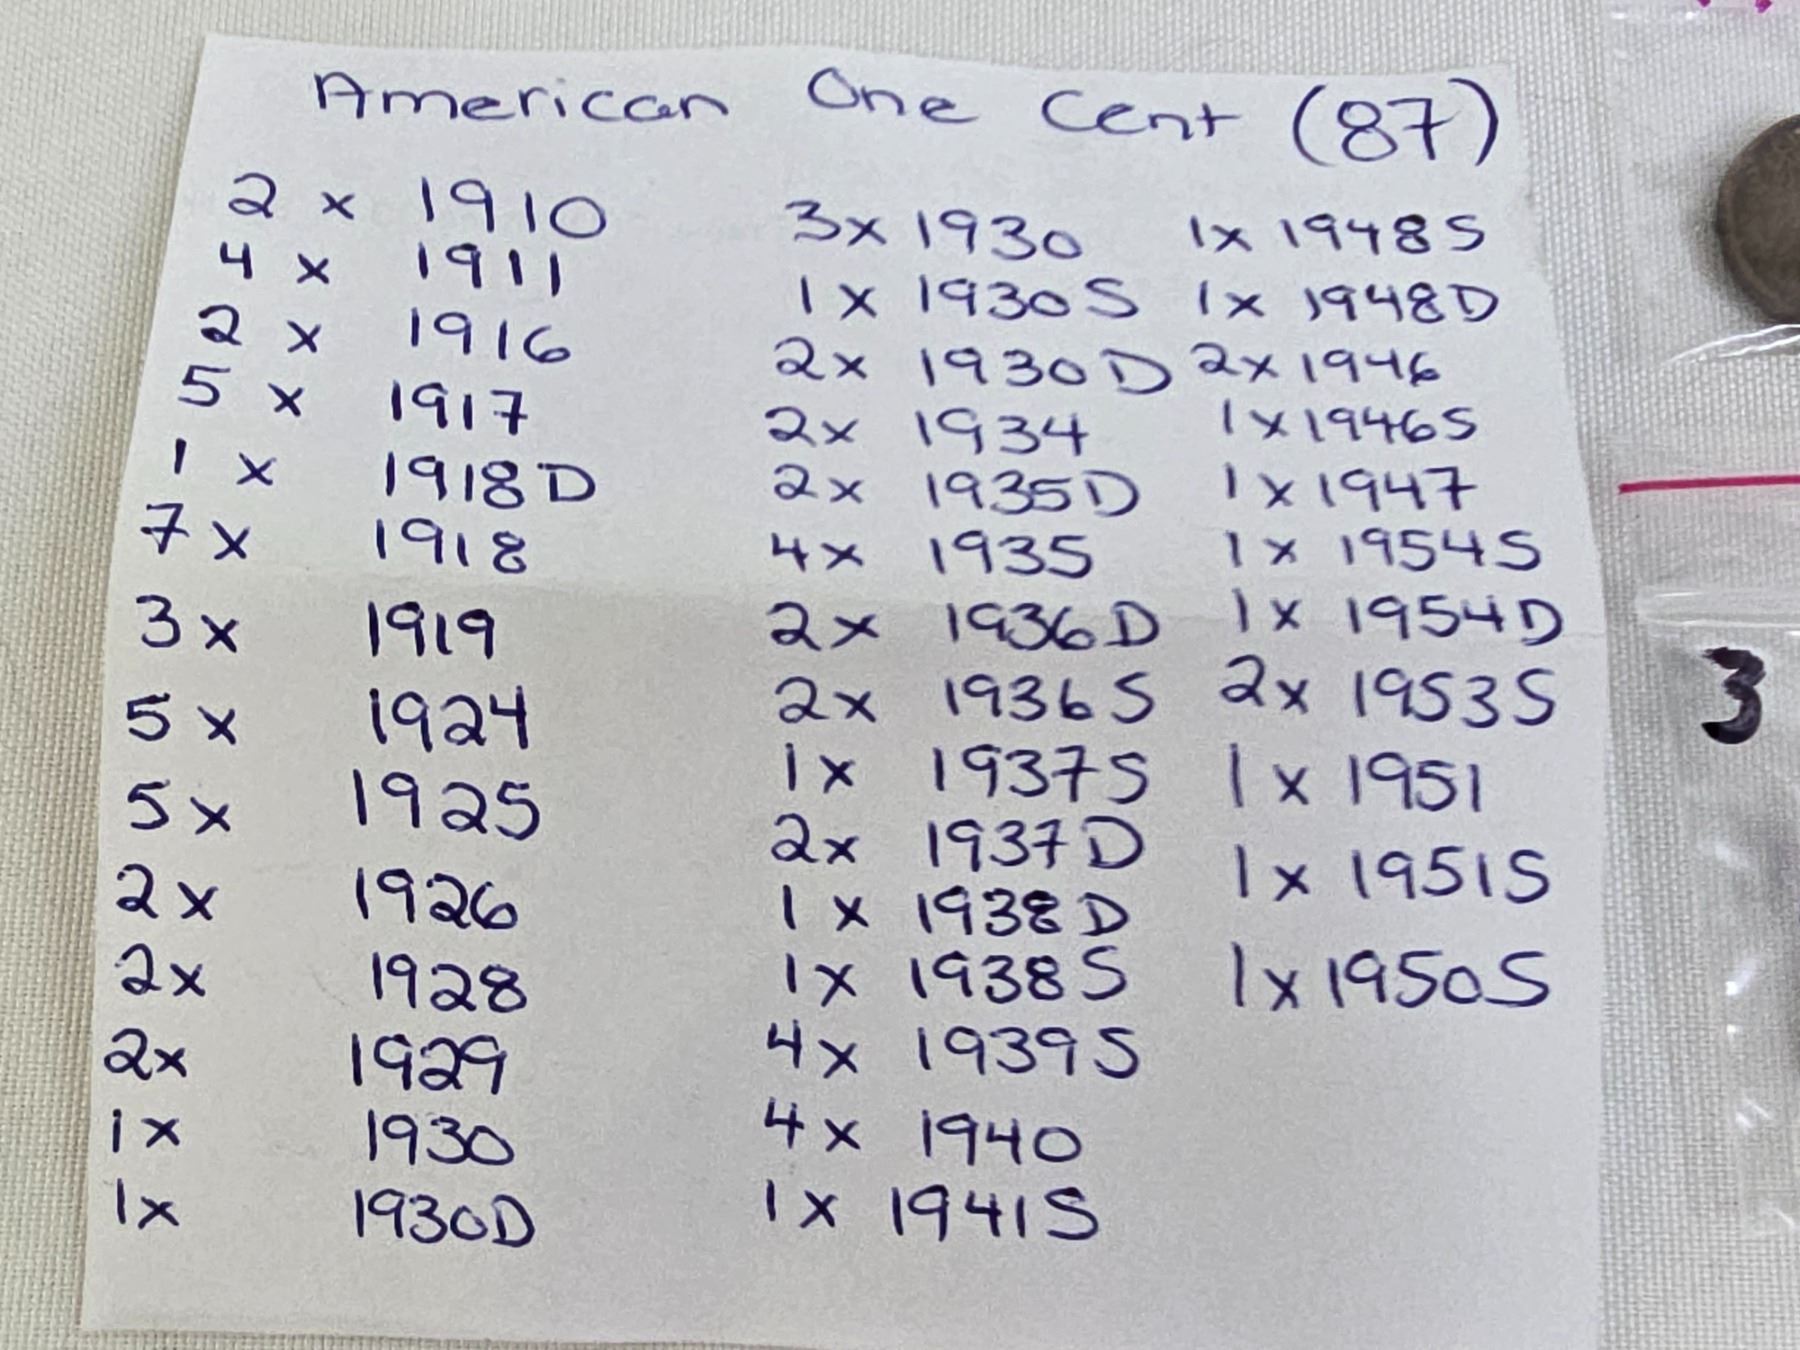 American One Cent (87)
2 x 1910
4 x 1911
2 x 1916
5 x 1917
1 x 1918D
7 x 1918
3 x 1919
5 x 1924
5 x 1925
2 x 1926
2x 1928
2x 1929
1x 1930
1x 1930D
3x 1930
1x 1930S
2x 1930D
2x 1934
2x 1935D
4x 1935
2x 1936D
2x 1936S
1x 1937S
2x 1937D
1x 1938D
1x 1938S
4x 1939S
4x 1940
1x 1941S
1x 1948S
1x 1948D
2x 1946
1x 1946S
1x 1947
1x 1954S
1x 1954D
2x 1953S
1x 1951
1x 1951S
1x 1950S
3